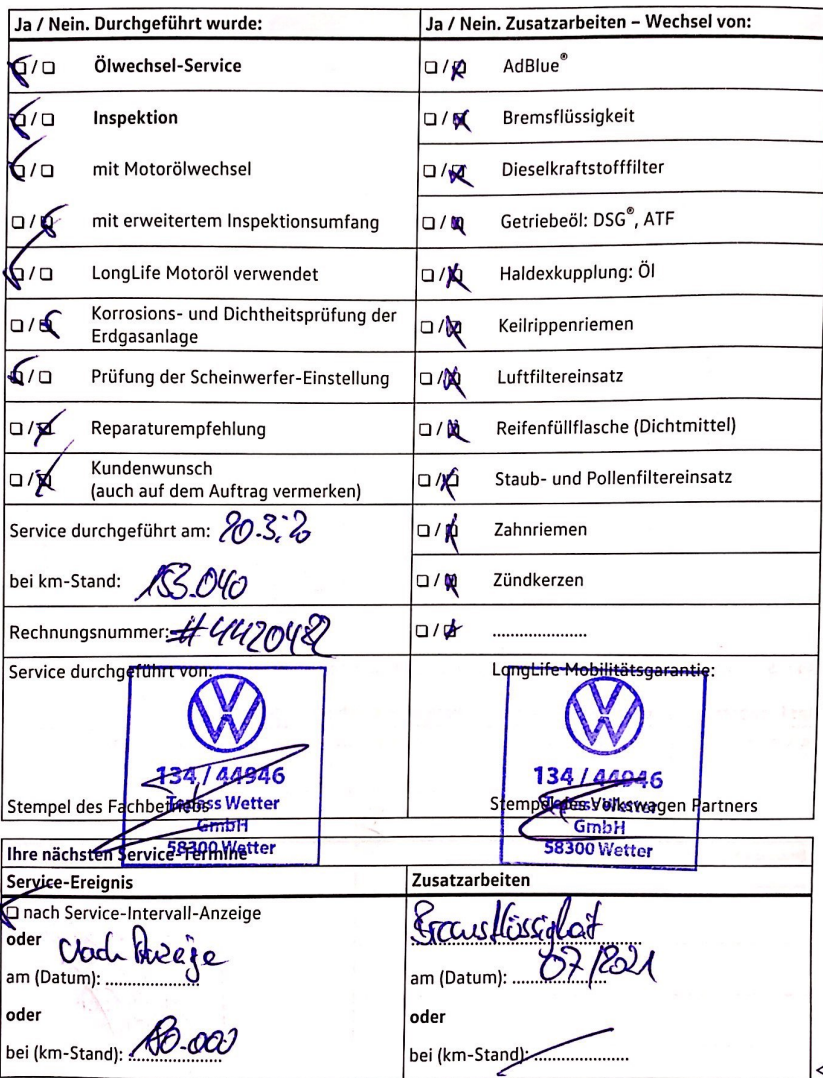 Ja / Nein. Durchgeführt wurde:
Ölwechsel-Service
Inspektion
mit Motorölwechsel
mit erweitertem Inspektionsumfang
LongLife Motoröl verwendet
Korrosions- und Dichtheitsprüfung der
Erdgasanlage
Prüfung der Scheinwerfer-Einstellung
Reparaturempfehlung
Kundenwunsch
(auch auf dem Auftrag vermerken)
Service durchgeführt am: 20.3.20
bei km-Stand: 153.040
Rechnungsnummer: #4420482
Service durchgeführt von:
VW
134 / 44946
Wetter
GmbH
58300 Wetter
Stempel des Fachbetriebs
Ja / Nein. Zusatzarbeiten – Wechsel von:
AdBlue®
Bremsflüssigkeit
Dieselkraftstofffilter
Getriebeöl: DSG®, ATF
Haldexkupplung: Öl
Keilrippenriemen
Luftfiltereinsatz
Reifenfüllflasche (Dichtmittel)
Staub- und Pollenfiltereinsatz
Zahnriemen
Zündkerzen
.....................
LongLife Mobilitätsgarantie:
VW
134 / 44946
GmbH
58300 Wetter
Stempel des Volkswagen Partners
Ihre nächsten Service-Termine
Service-Ereignis
nach Service-Intervall-Anzeige
oder Nach Anzeige
am (Datum): .....................
oder
bei (km-Stand): 180.000
Zusatzarbeiten
Bremsflüssigkeit
am (Datum): 07/2021
oder
bei (km-Stand): .....................